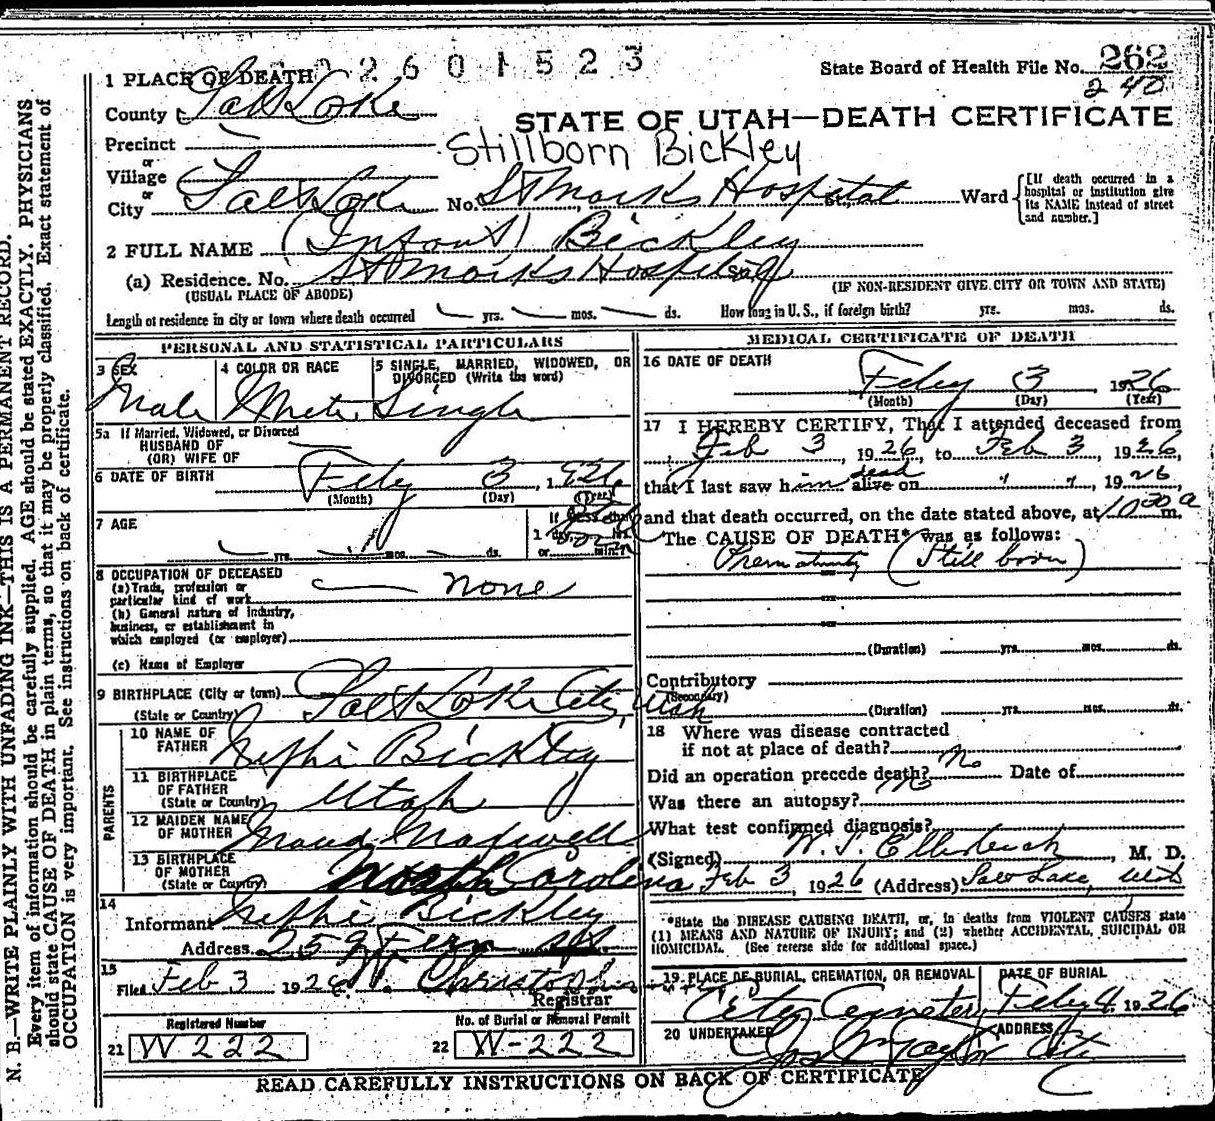 2601523
1 PLACE OF DEATH
State Board of Health File No. 262
240
County Salt Lake
STATE OF UTAH—DEATH CERTIFICATE
Precinct
Stillborn Bickley
or
Village
or
City Salt Lake No. St Marks Hospital St., Ward
[If death occurred in a
hospital or institution give
its NAME instead of street
and number.]
2 FULL NAME (Infant) Bickley
(a) Residence. No. St Marks Hospital
(USUAL PLACE OF ABODE) (IF NON-RESIDENT GIVE CITY OR TOWN AND STATE)
Length of residence in city or town where death occurred yrs. mos. ds. How long in U. S., if foreign birth? yrs. mos. ds.
PERSONAL AND STATISTICAL PARTICULARS
3 SEX 4 COLOR OR RACE 5 SINGLE, MARRIED, WIDOWED, OR
DIVORCED (Write the word)
Male White Single
5a If Married, Widowed, or Divorced
HUSBAND OF
(OR) WIFE OF
6 DATE OF BIRTH Feby 3, 1926
(Month) (Day) (Year)
7 AGE
yrs. mos. ds.
8 OCCUPATION OF DECEASED
(a) Trade, profession or
particular kind of work none
(b) General nature of industry,
business, or establishment in
which employed (or employer)
(c) Name of Employer
9 BIRTHPLACE (City or town) Salt Lake City, Utah
(State or Country)
PARENTS
10 NAME OF
FATHER Nephi Bickley
11 BIRTHPLACE
OF FATHER
(State or Country) Utah
12 MAIDEN NAME
OF MOTHER Maud Maxwell
13 BIRTHPLACE
OF MOTHER
(State or Country) North Carolina
14
Informant Nephi Bickley
Address 253 Fern
15
Filed Feb 3 1926
Registrar
Registered Number No. of Burial or Removal Permit
21 W 222 22 W-222
MEDICAL CERTIFICATE OF DEATH
16 DATE OF DEATH
Feby 3 1926
(Month) (Day) (Year)
17 I HEREBY CERTIFY, That I attended deceased from
Feb 3, 1926, to Feb 3, 1926,
that I last saw him dead alive on " ", 1926
and that death occurred, on the date stated above, at 10 30 a m.
The CAUSE OF DEATH* was as follows:
Prematurity (Still born)
(Duration) yrs. mos. ds.
Contributory
(Secondary)
(Duration) yrs. mos. ds.
18 Where was disease contracted
if not at place of death?
Did an operation precede death? No Date of
Was there an autopsy? No
What test confirmed diagnosis?
(Signed) , M. D.
Feb 3, 1926 (Address) Salt Lake, Utah
*State the DISEASE CAUSING DEATH, or, in deaths from VIOLENT CAUSES state
(1) MEANS AND NATURE OF INJURY; and (2) whether ACCIDENTAL, SUICIDAL OR
HOMICIDAL. (See reverse side for additional space.)
19 PLACE OF BURIAL, CREMATION, OR REMOVAL DATE OF BURIAL
City Cemetery Feby 4 1926
20 UNDERTAKER ADDRESS
Taylor City
READ CAREFULLY INSTRUCTIONS ON BACK OF CERTIFICATE
N. B.—WRITE PLAINLY WITH UNFADING INK—THIS IS A PERMANENT RECORD.
Every item of information should be carefully supplied. AGE should be stated EXACTLY. PHYSICIANS
should state CAUSE OF DEATH in plain terms, so that it may be properly classified. Exact statement of
OCCUPATION is very important. See instructions on back of certificate.